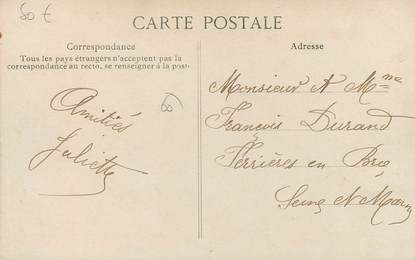 50 €
CARTE POSTALE
Correspondance
Tous les pays étrangers n'acceptent pas la
correspondance au recto, se renseigner à la poste
Amitiés
Juliette
50
Adresse
Monsieur et Mme
François Durand
Ferrières en Brie
Seine et Marne